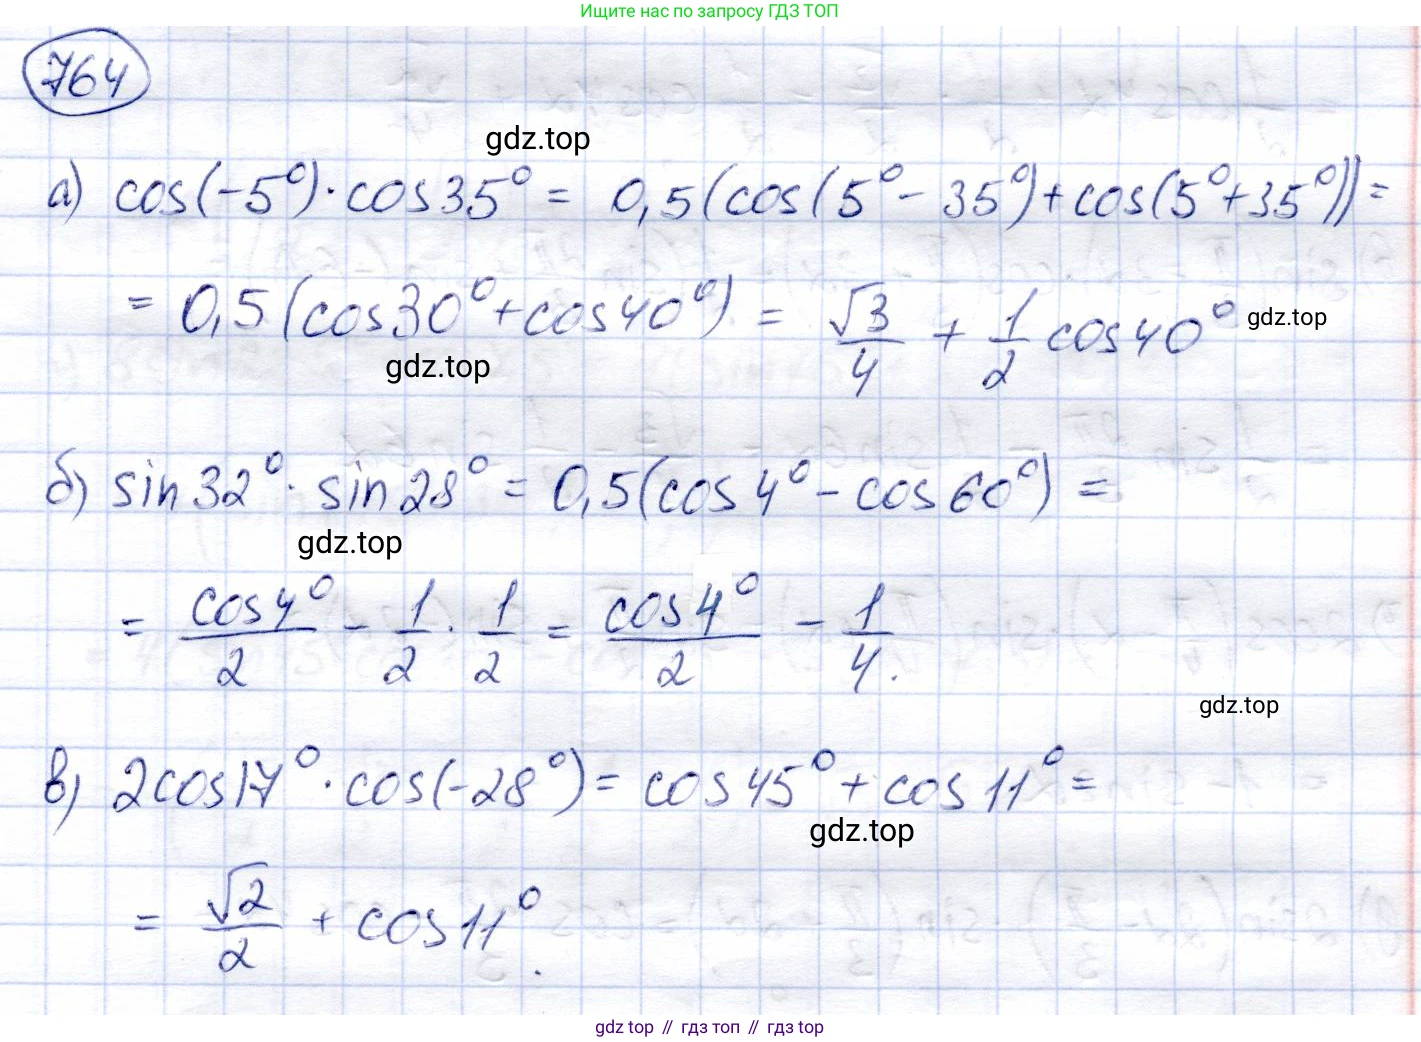 Ищите нас по запросу ГДЗ ТОП
764
gdz.top
а) cos(-5°)·cos35° = 0,5(cos(5°-35°)+cos(5°+35°))=
= 0,5(cos30°+cos40°) = √3/4 + 1/2 cos40°
gdz.top
gdz.top
б) sin32°·sin28° = 0,5(cos4°-cos60°) =
gdz.top
= cos4°/2 - 1/2 · 1/2 = cos4°/2 - 1/4.
gdz.top
в) 2cos17°·cos(-28°)= cos45°+cos11°=
gdz.top
= √2/2 + cos11°.
gdz top // гдз топ // гдз top